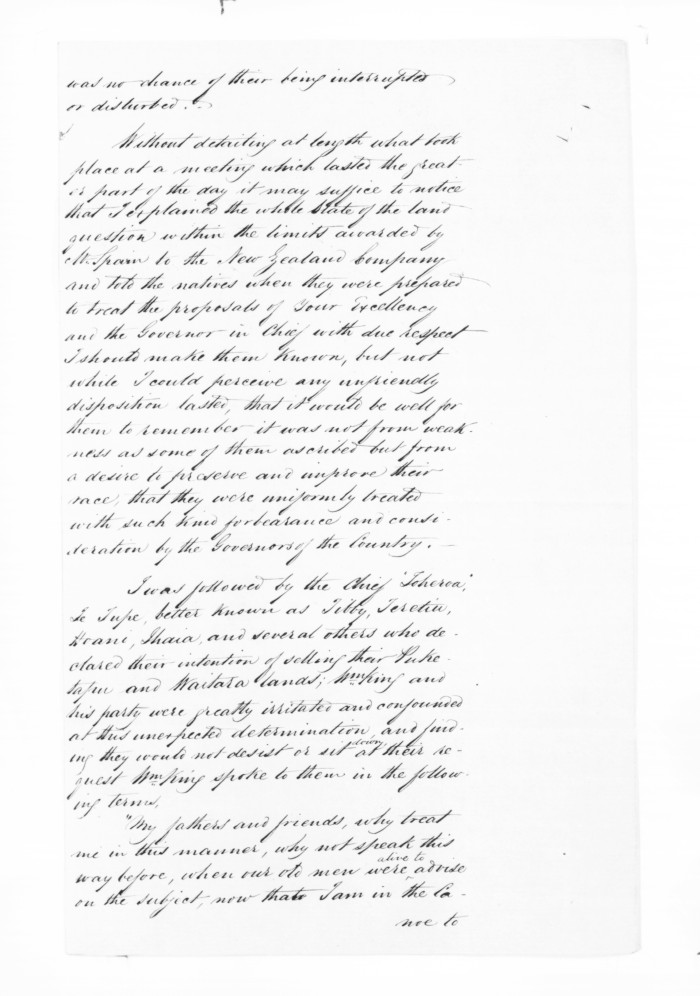 was no chance of their being interrupted
or disturbed. -
Without detailing at length what took
place at a meeting which lasted the great-
er part of the day it may suffice to notice
that I explained the whole state of the land
question within the limits awarded by
Mr. Spain to the New Zealand Company
and told the natives when they were prepared
to treat the proposals of Your Excellency
and the Governor in Chief with due respect
I should make them known, but not
while I could perceive any unfriendly
disposition lasted, that it would be well for
them to remember it was not from weak-
ness as some of them ascribed but from
a desire to preserve and improve their
race, that they were uniformly treated
with such kind forbearance and consi-
deration by the Governors of the Country. -
I was followed by the Chief "Toheroa",
Te Tupe, better known as Tibby, Teretiu,
Ihaia, and several others who de-
clared their intention of selling their Puke-
tapu and Waitara lands; Wm King and
his party were greatly irritated and confounded
at this unexpected determination, and find-
ing they would not desist or sit down at their re-
quest Wm King spoke to them in the follow-
ing terms.
"My fathers and friends, why treat
me in this manner, why not speak this
way before, when our old men were alive to advise
on the subject, now that I am in the Ca-
noe to